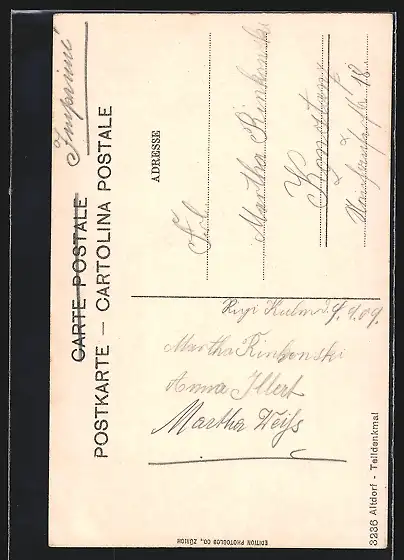 Imprimé
CARTE POSTALE
POSTKARTE — CARTOLINA POSTALE
ADRESSE
Frl.
Martha Rinkenski
Konstanz
Rigi Kulm d. 9.9.09.
Martha Rinkenski
Anna Illert
Martha Weiß
EDITION PHOTOGLOB CO., ZÜRICH
3236 Altdorf - Telldenkmal